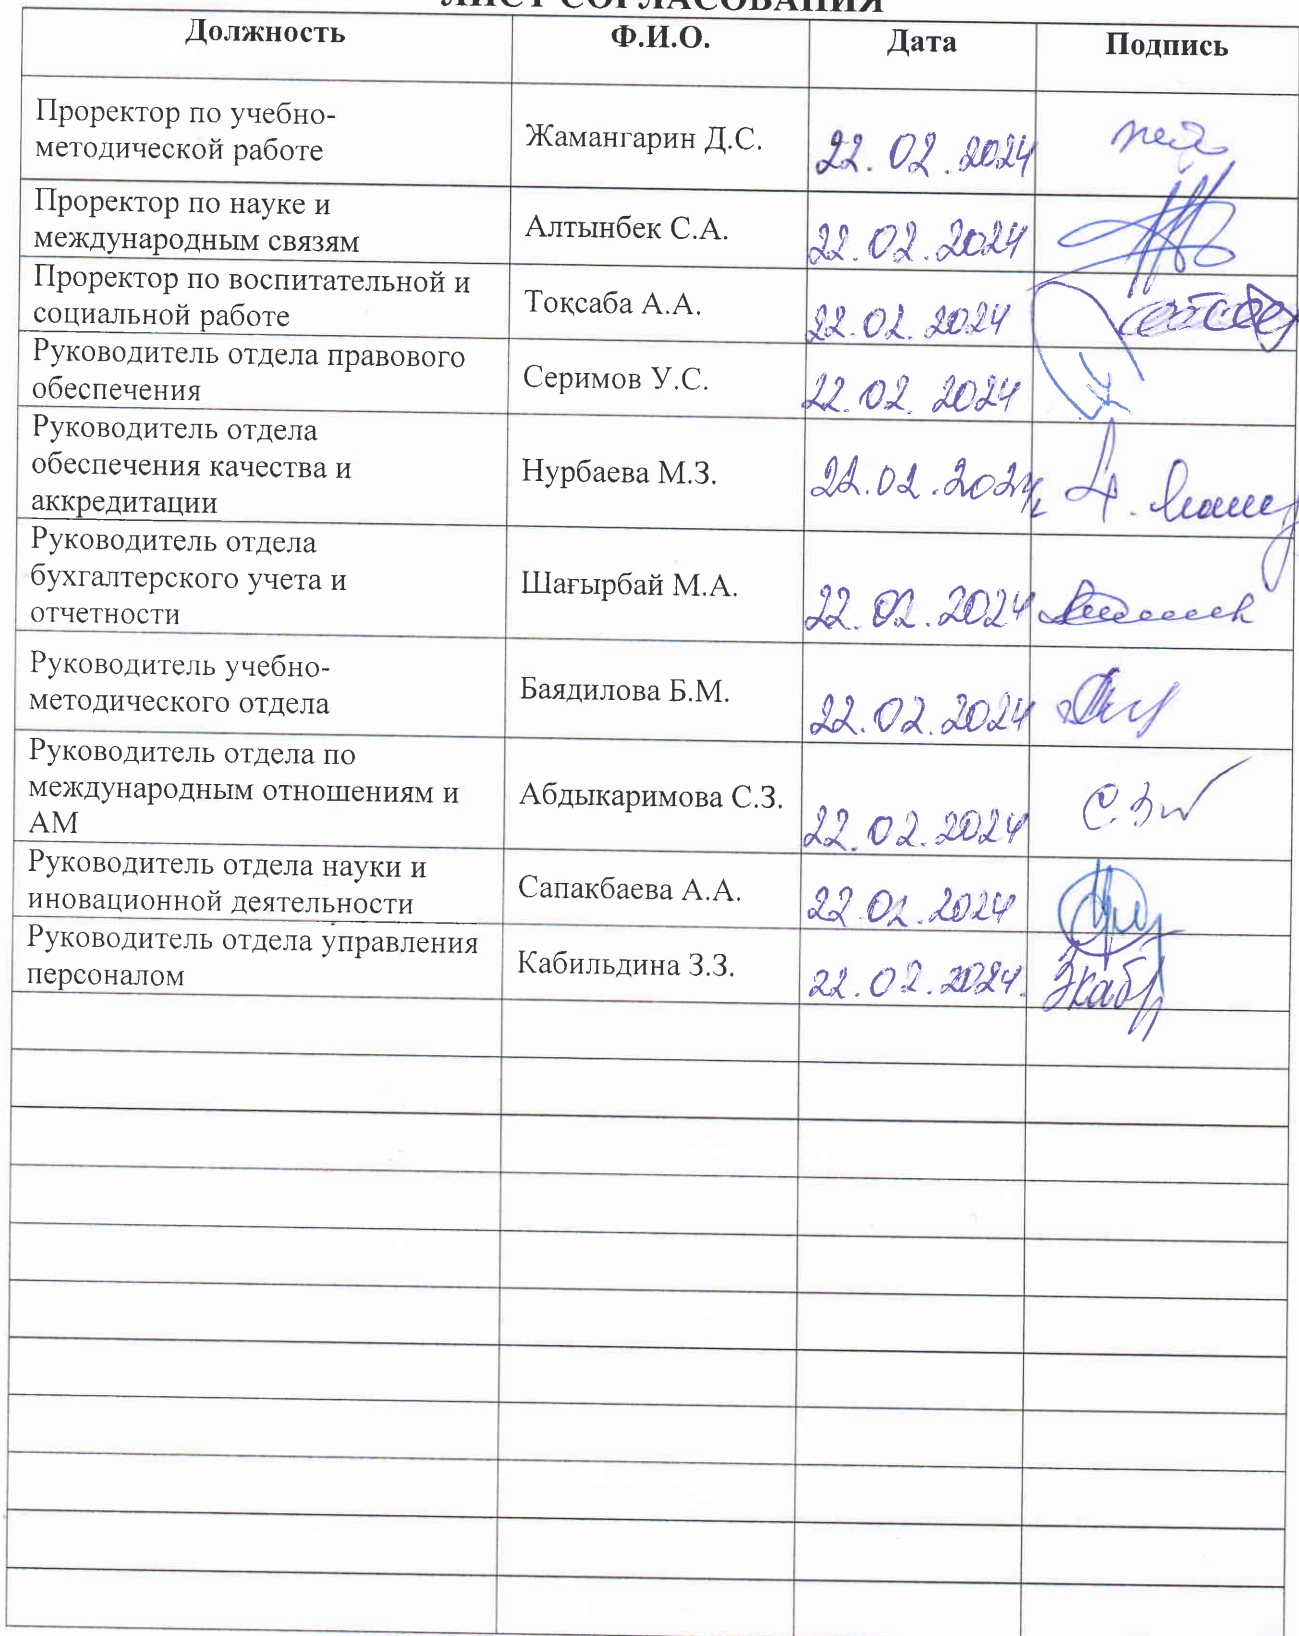 ЛИСТ СОГЛАСОВАНИЯ
Должность Ф.И.О. Дата Подпись
Проректор по учебно-
методической работе Жамангарин Д.С. 22.02.2024
Проректор по науке и
международным связям Алтынбек С.А. 22.02.2024
Проректор по воспитательной и
социальной работе Тоқсаба А.А. 22.02.2024
Руководитель отдела правового
обеспечения Серимов У.С. 22.02.2024
Руководитель отдела
обеспечения качества и Нурбаева М.З. 22.02.2024
аккредитации
Руководитель отдела
бухгалтерского учета и Шағырбай М.А. 22.02.2024
отчетности
Руководитель учебно-
методического отдела Баядилова Б.М. 22.02.2024
Руководитель отдела по
международным отношениям и Абдыкаримова С.З. 22.02.2024
АМ
Руководитель отдела науки и
иновационной деятельности Сапакбаева А.А. 22.02.2024
Руководитель отдела управления
персоналом Кабильдина З.З. 22.02.2024.